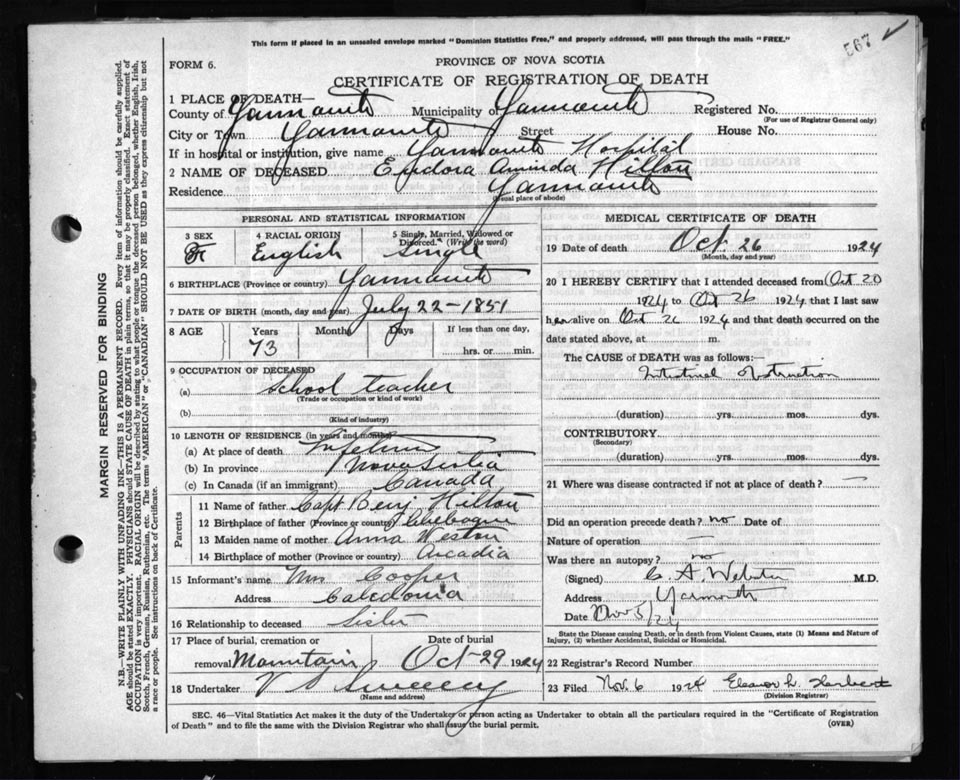 This form if placed in an unsealed envelope marked "Dominion Statistics Free," and properly addressed, will pass through the mails "FREE."
567
FORM 6.
PROVINCE OF NOVA SCOTIA
CERTIFICATE OF REGISTRATION OF DEATH
1 PLACE OF DEATH—
County of Yarmouth Municipality of Yarmouth Registered No.
(For use of Registrar General only)
City or Town Yarmouth Street House No.
If in hospital or institution, give name Yarmouth Hospital
2 NAME OF DECEASED Eudora Aminda Hilton
Residence Yarmouth
(Usual place of abode)
PERSONAL AND STATISTICAL INFORMATION
3 SEX 4 RACIAL ORIGIN 5 Single, Married, Widowed or Divorced. (Write the word)
F English Single
6 BIRTHPLACE (Province or country) Yarmouth
7 DATE OF BIRTH (month, day and year) July 22-1851
8 AGE Years Months Days If less than one day,
73 hrs. or min.
9 OCCUPATION OF DECEASED
(a) School teacher
(Trade or occupation or kind of work)
(b)
(Kind of industry)
10 LENGTH OF RESIDENCE (in years and months)
(a) At place of death Lifetime
(b) In province Nova Scotia
(c) In Canada (if an immigrant) Canada
Parents
11 Name of father Capt Benj Hilton
12 Birthplace of father (Province or country) Chebogue
13 Maiden name of mother Anna Weston
14 Birthplace of mother (Province or country) Arcadia
15 Informant's name Mrs Cooper
Address Caledonia
16 Relationship to deceased Sister
17 Place of burial, cremation or Date of burial
removal Mountain Oct-29 1924
18 Undertaker V S Sweeny
(Name and address)
MEDICAL CERTIFICATE OF DEATH
19 Date of death Oct 26 1924
(Month, day and year)
20 I HEREBY CERTIFY that I attended deceased from Oct 20
1924 to Oct 26 1924 that I last saw
her alive on Oct 26 1924 and that death occurred on the
date stated above, at m.
The CAUSE of DEATH was as follows:—
Intestinal Obstruction
(duration) yrs. mos. dys.
CONTRIBUTORY
(Secondary)
(duration) yrs. mos. dys.
21 Where was disease contracted if not at place of death? —
Did an operation precede death? no Date of
Nature of operation —
Was there an autopsy? no
(Signed) C. A. Webster M.D.
Address Yarmouth
Date Nov 5/24
State the Disease causing Death, or in death from Violent Causes, state (1) Means and Nature of
Injury, (2) whether Accidental, Suicidal or Homicidal.
22 Registrar's Record Number
23 Filed Nov. 6 1924 Eleanor L. Herbert
(Division Registrar)
SEC. 46—Vital Statistics Act makes it the duty of the Undertaker or person acting as Undertaker to obtain all the particulars required in the "Certificate of Registration
of Death" and to file the same with the Division Registrar who shall issue the burial permit.
(OVER)
MARGIN RESERVED FOR BINDING
N.B.—WRITE PLAINLY WITH UNFADING INK—THIS IS A PERMANENT RECORD. Every item of information should be carefully supplied.
AGE should be stated EXACTLY. PHYSICIANS should STATE CAUSE OF DEATH in plain terms, so that it may be properly classified. Exact statement of
OCCUPATION is very important. RACIAL ORIGIN will be described by stating to what people or tongue the deceased person belonged, whether English, Irish,
Scotch, French, German, Russian, Ruthenian, etc. The terms "AMERICAN" or "CANADIAN" SHOULD NOT BE USED as they express citizenship but not
a race or people. See instructions on back of Certificate.